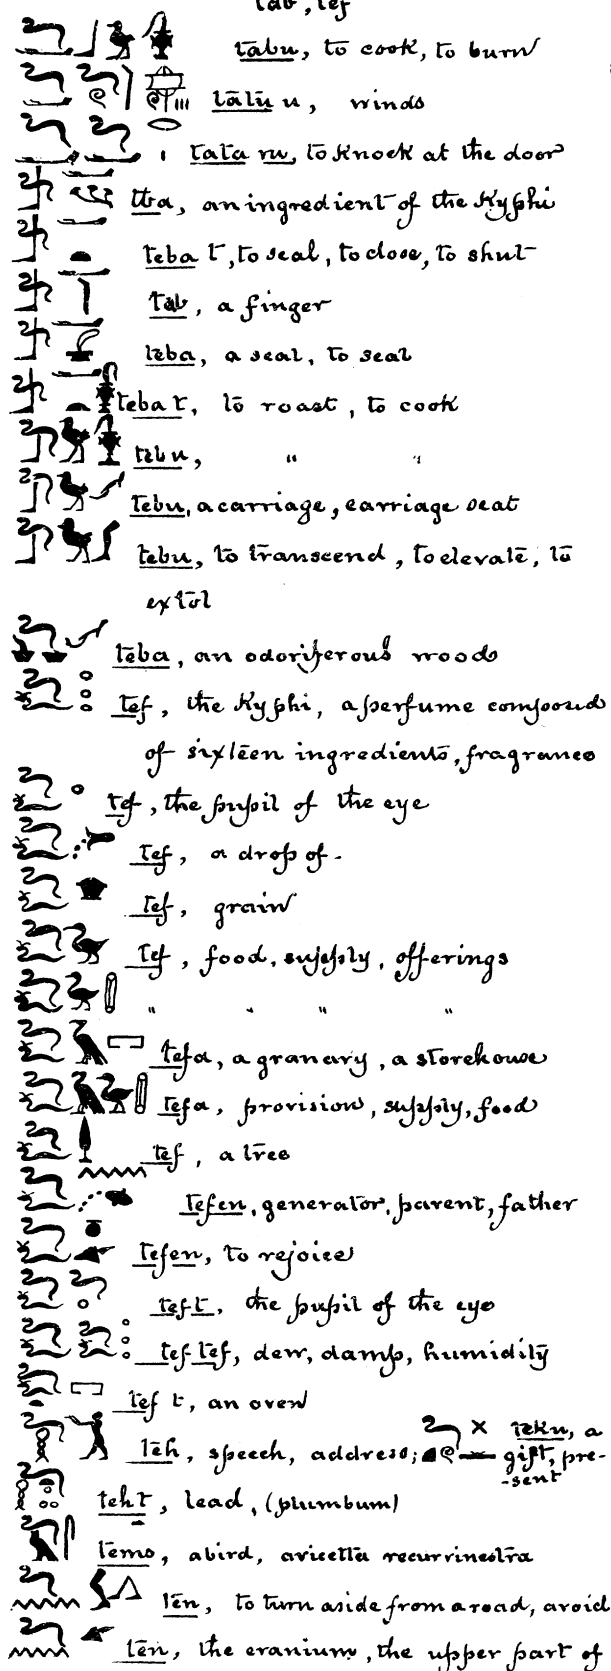 tab, tef
tabu, to cook, to burn
tatu u, winds
tata ru, to knock at the door
tba, an ingredient of the Kyphi
teba t, to seal, to close, to shut
tab, a finger
teba, a seal, to seal
teba t, to roast, to cook
tebu, " "
tebu, a carriage, carriage seat
tebu, to transcend, to elevate, to
extol
teba, an odoriferous wood
tef, the Kyphi, a perfume composed
of sixteen ingredients, fragrance
tef, the pupil of the eye
tef, a drop of.
tef, grain
tef, food, supply, offerings
" " " "
tefa, a granary, a storehouse
tefa, provision, supply, food
tef, a tree
tefen, generator, parent, father
tefen, to rejoice
teft, the pupil of the eye
tef tef, dew, damp, humidity
tef t, an oven
teh, speech, address; teku, a
gift, pre-
-sent
teht, lead, (plumbum)
tems, a bird, avicetta recurrinostra
ten, to turn aside from a road, avoid
ten, the cranium, the upper part of